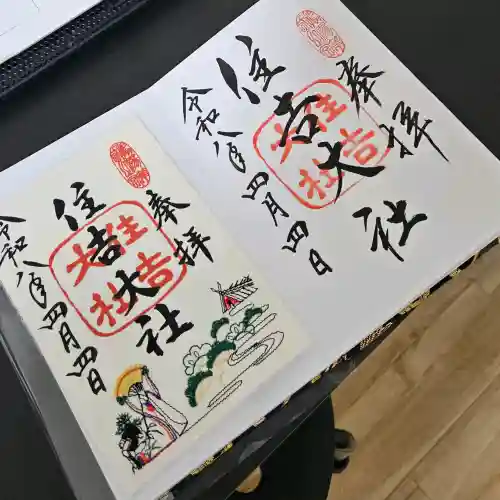 奉拝
住吉大社
住吉大社
令和八年四月四日
奉拝
住吉大社
住吉大社
令和八年四月四日